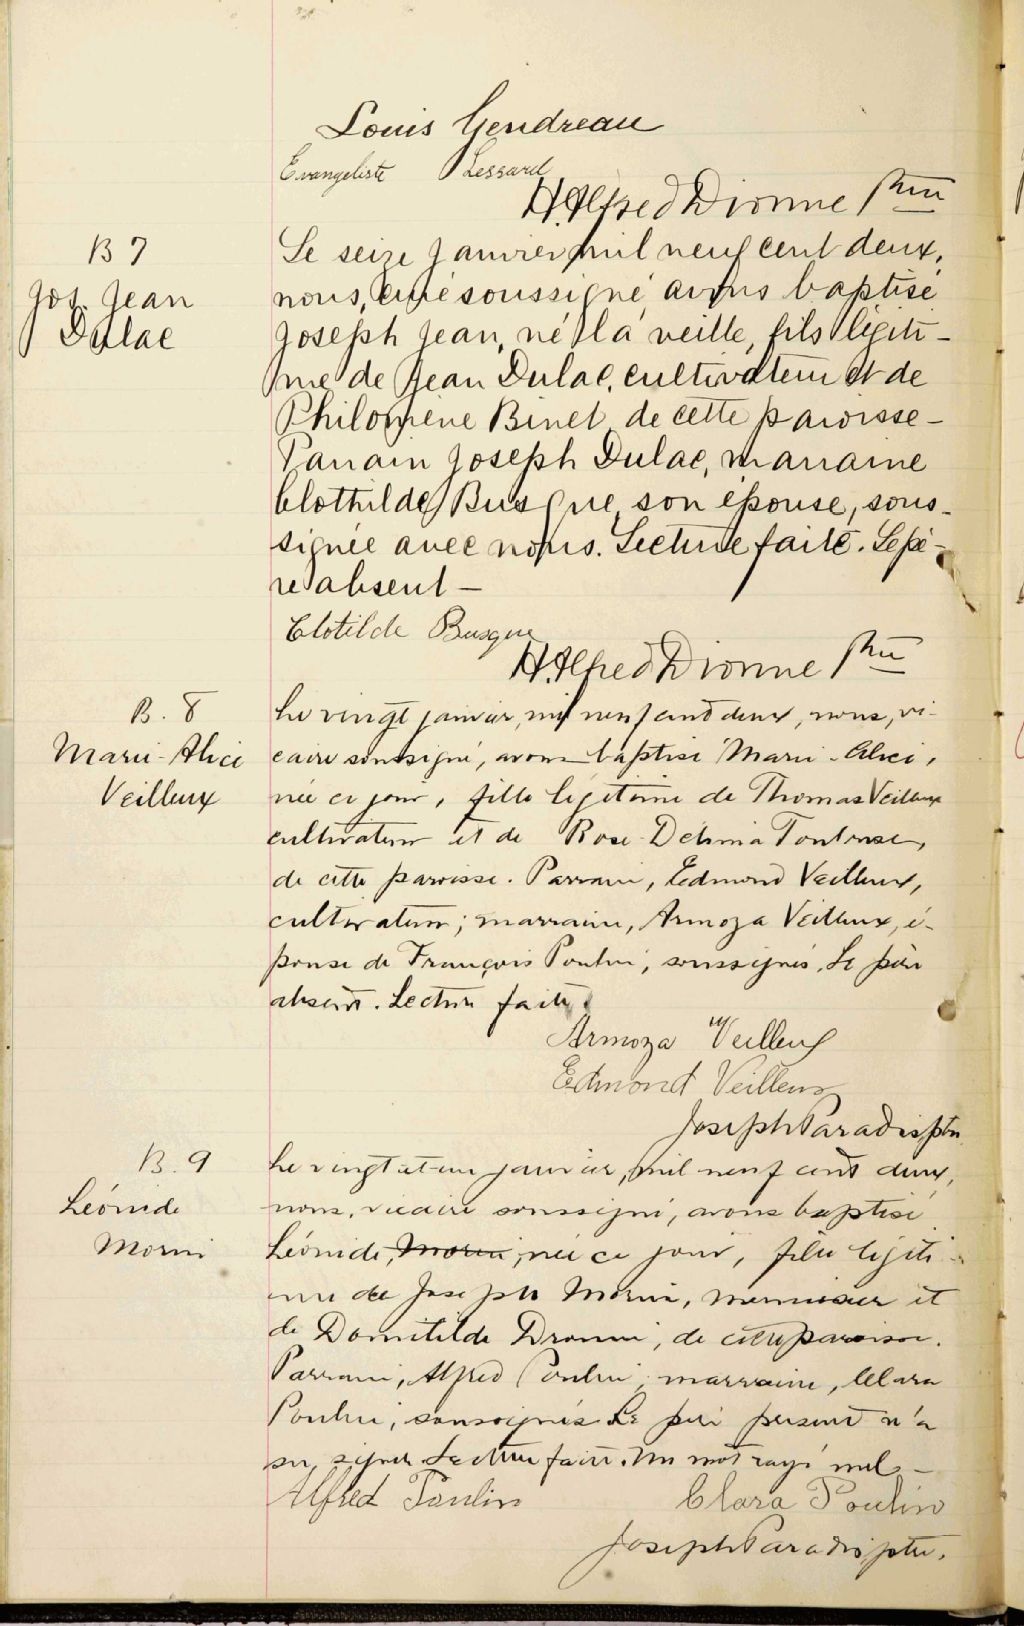 Louis Gendreau
Evangeliste Lessard
H. Alfred Dionne Ptre
B 7
Jos. Jean
Dulac
Le seize janvier mil neuf cent deux,
nous, curé soussigné avons baptisé
Joseph Jean, né la veille, fils légiti-
me de Jean Dulac, cultivateur et de
Philomène Binet, de cette paroisse-
Parrain Joseph Dulac, marraine
Clothilde Busque, son épouse, sous-
signée avec nous. Lecture faite. Le pè-
re absent -
Clotilde Busque
H. Alfred Dionne Ptre
B. 8
Marie-Alice
Veilleux
Le vingt janvier, mil neuf cent deux, nous, vi-
caire soussigné, avons baptisé Marie-Alice,
née ce jour, fille légitime de Thomas Veilleux
cultivateur et de Rose-Délima Toulouse,
de cette paroisse. Parrain, Edmond Veilleux,
cultivateur; marraine, Armoza Veilleux, é-
pouse de François Poulin, soussignés. Le père
absent. Lecture faite.
Armoza Veilleux
Edmond Veilleux
Joseph Paradis, ptre
B. 9
Léonide
Morin
Le vingt et un janvier, mil neuf cent deux,
nous, vicaire soussigné, avons baptisé
Léonide, Morin, née ce jour, fille légiti-
me de Joseph Morin, menuisier et
de Domitilde Drouin, de cette paroisse.
Parrain, Alfred Poulin, marraine, Clara
Poulin, soussignés Le père present n'a
su signer Lecture faite. Un mot rayé nul -
Alfred Poulin Clara Poulin
Joseph Paradis, ptre.